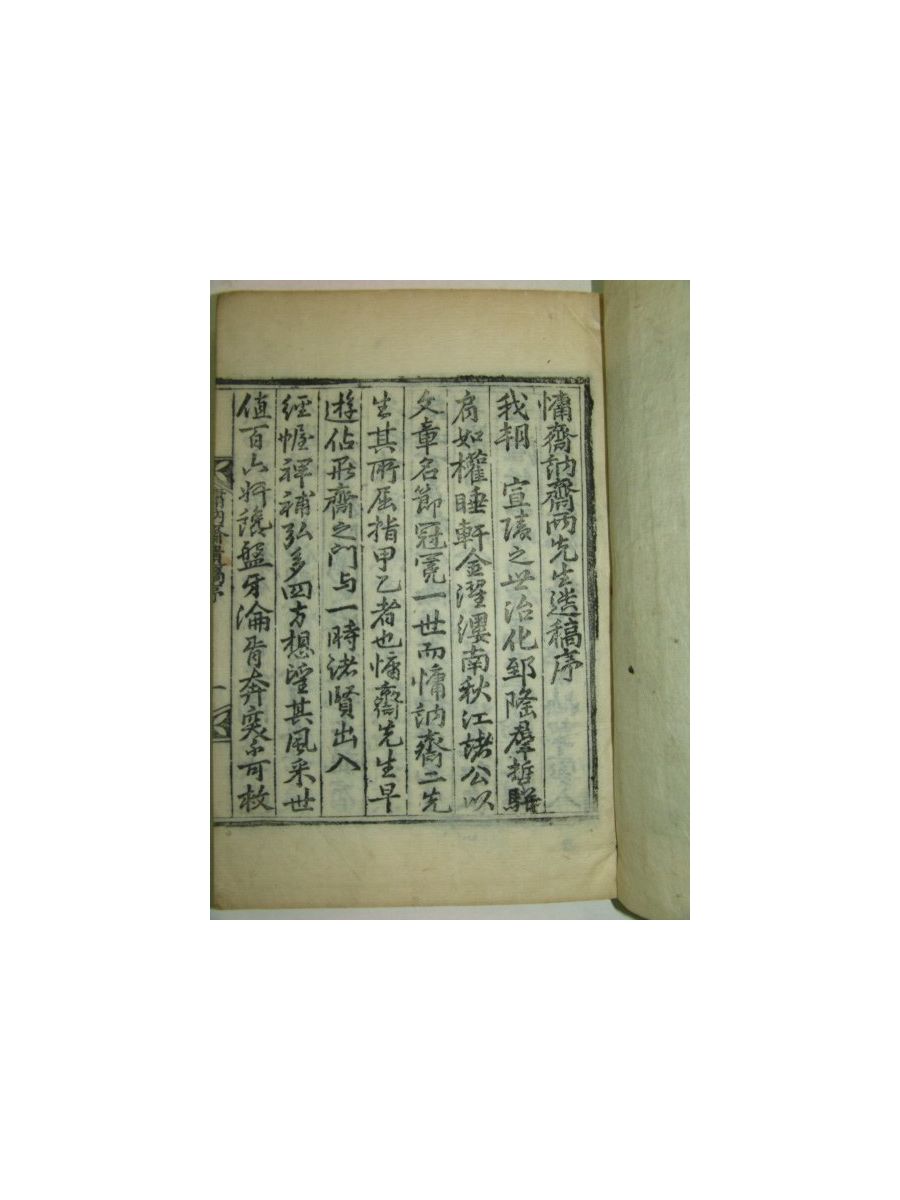 慵齋訥齋兩先生遺稿序
我朝 宣陵之世治化郅隆羣哲騈
肩如權睡軒金濯纓南秋江諸公以
文章名節冠冕一世而慵訥齋二先
生其所屈指甲乙者也慵齋先生早
遊佔畢齋之门与一時諸賢出入
經幄裨補弘多四方想望其風采世
值百六將譏盤牙淪胥奔突不可救